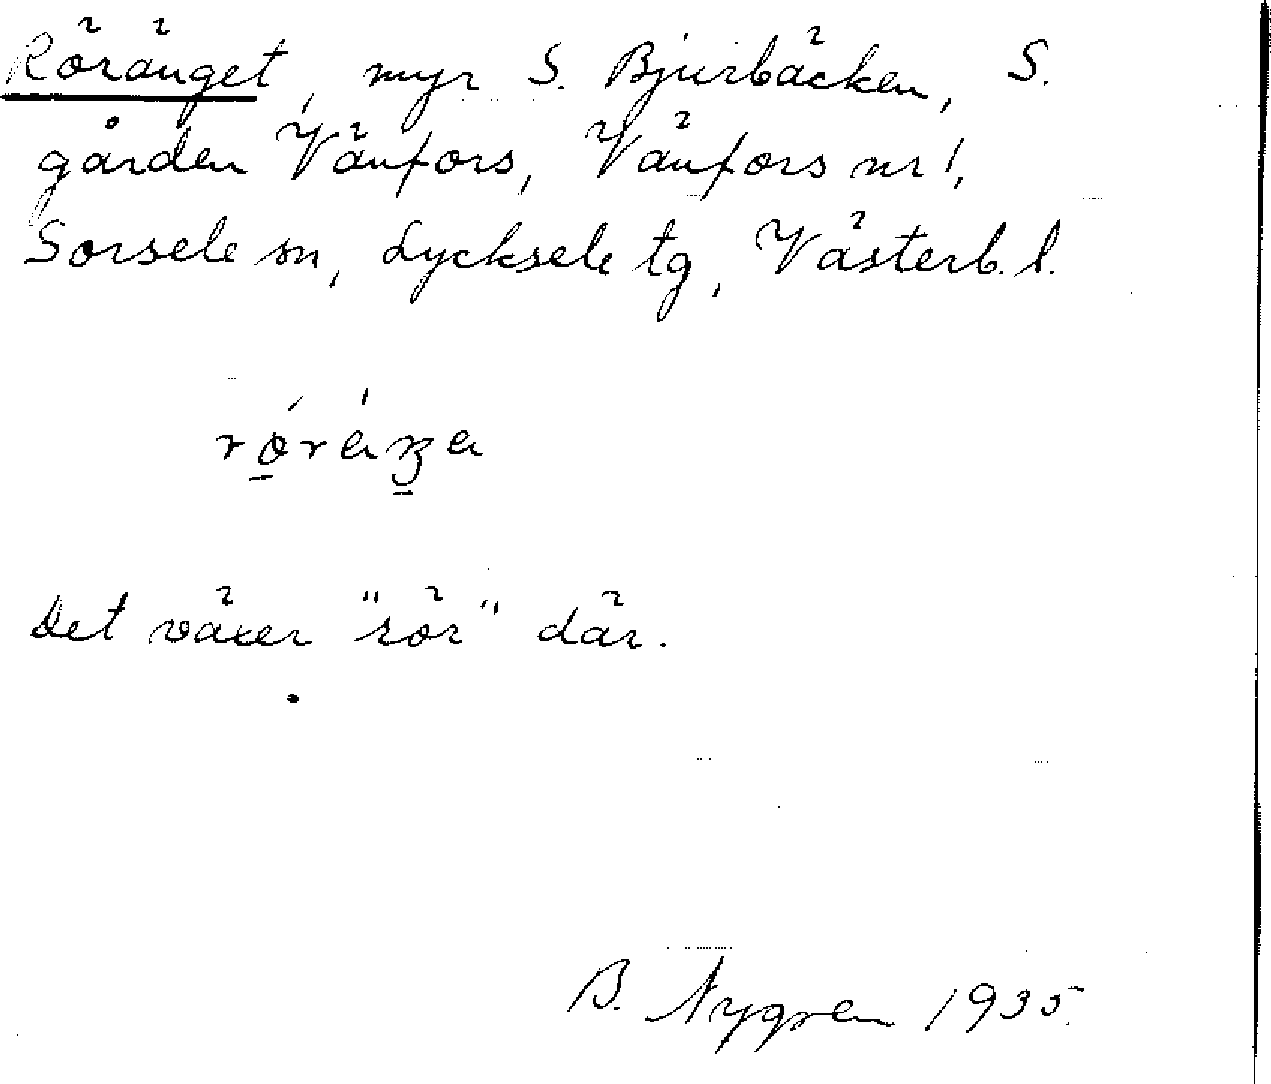 Röränget, myr S. Bjurbäcken, S.
gården Vänfors, Vänfors nr 1,
Sorsele sn, Lycksele tg, Västerb. l.
Det växer "rör" där.
B. Nygren 1935.